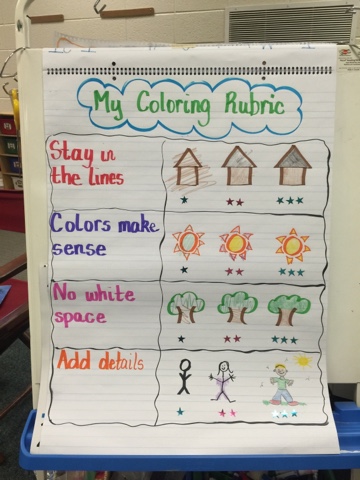 My Coloring Rubric
Stay in
the lines
Colors make
sense
No white
space
Add details